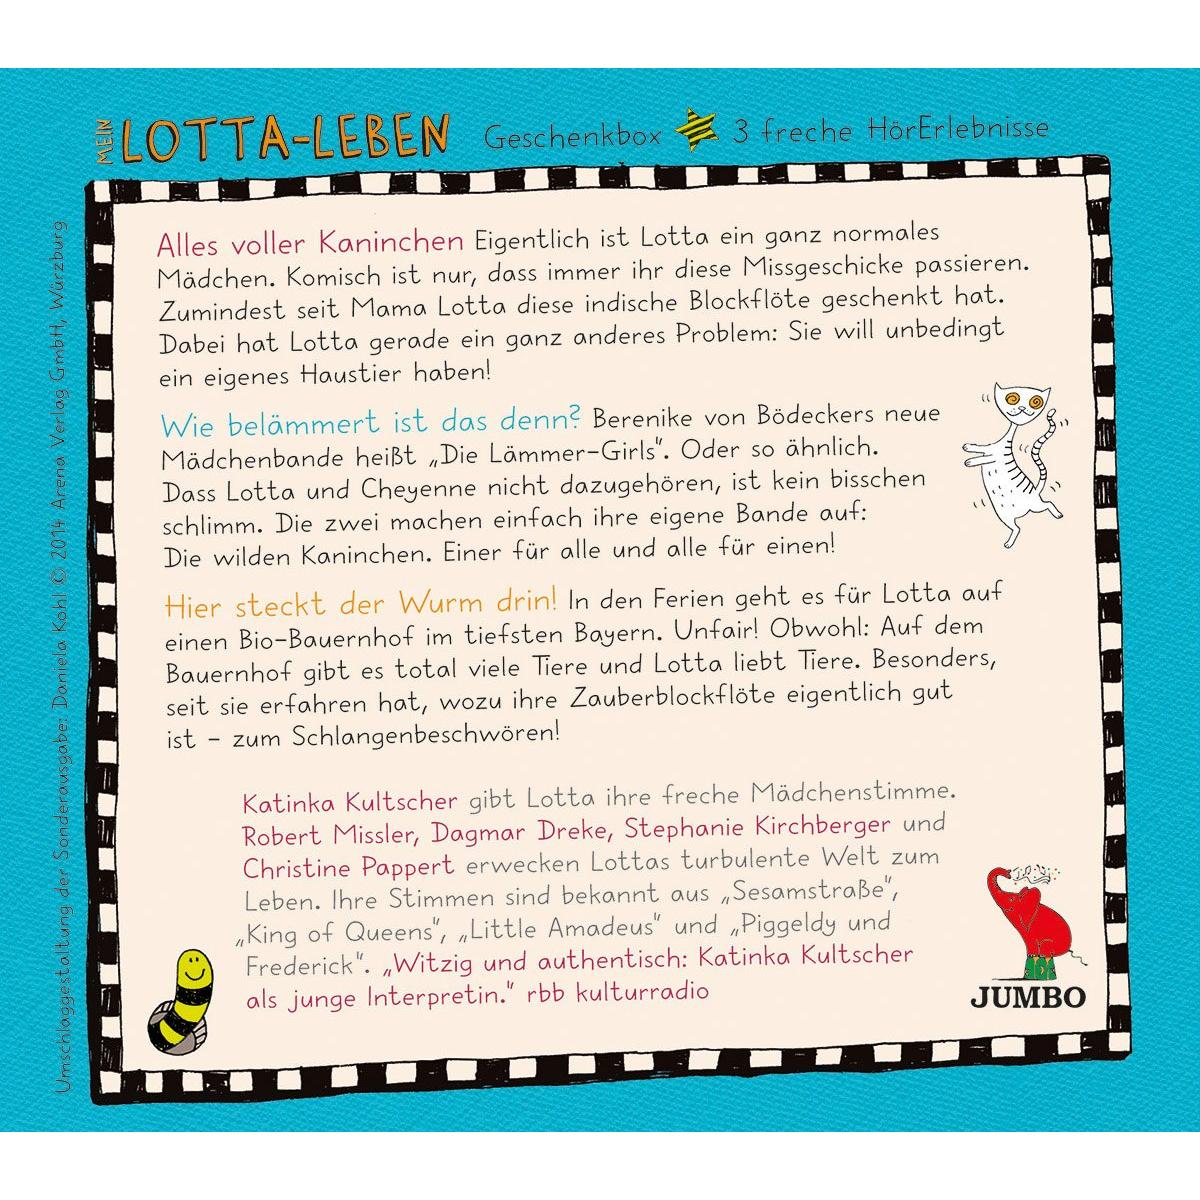 MEIN LOTTA-LEBEN Geschenkbox 3 freche HörErlebnisse
Alles voller Kaninchen Eigentlich ist Lotta ein ganz normales
Mädchen. Komisch ist nur, dass immer ihr diese Missgeschicke passieren.
Zumindest seit Mama Lotta diese indische Blockflöte geschenkt hat.
Dabei hat Lotta gerade ein ganz anderes Problem: Sie will unbedingt
ein eigenes Haustier haben!
Wie belämmert ist das denn? Berenike von Bödeckers neue
Mädchenbande heißt „Die Lämmer-Girls". Oder so ähnlich.
Dass Lotta und Cheyenne nicht dazugehören, ist kein bisschen
schlimm. Die zwei machen einfach ihre eigene Bande auf:
Die wilden Kaninchen. Einer für alle und alle für einen!
Hier steckt der Wurm drin! In den Ferien geht es für Lotta auf
einen Bio-Bauernhof im tiefsten Bayern. Unfair! Obwohl: Auf dem
Bauernhof gibt es total viele Tiere und Lotta liebt Tiere. Besonders,
seit sie erfahren hat, wozu ihre Zauberblockflöte eigentlich gut
ist – zum Schlangenbeschwören!
Katinka Kultscher gibt Lotta ihre freche Mädchenstimme.
Robert Missler, Dagmar Dreke, Stephanie Kirchberger und
Christine Pappert erwecken Lottas turbulente Welt zum
Leben. Ihre Stimmen sind bekannt aus „Sesamstraße",
„King of Queens", „Little Amadeus" und „Piggeldy und
Frederick". „Witzig und authentisch: Katinka Kultscher
als junge Interpretin." rbb kulturradio
JUMBO
Umschlaggestaltung der Sonderausgabe: Daniela Kohl © 2014 Arena Verlag GmbH, Würzburg